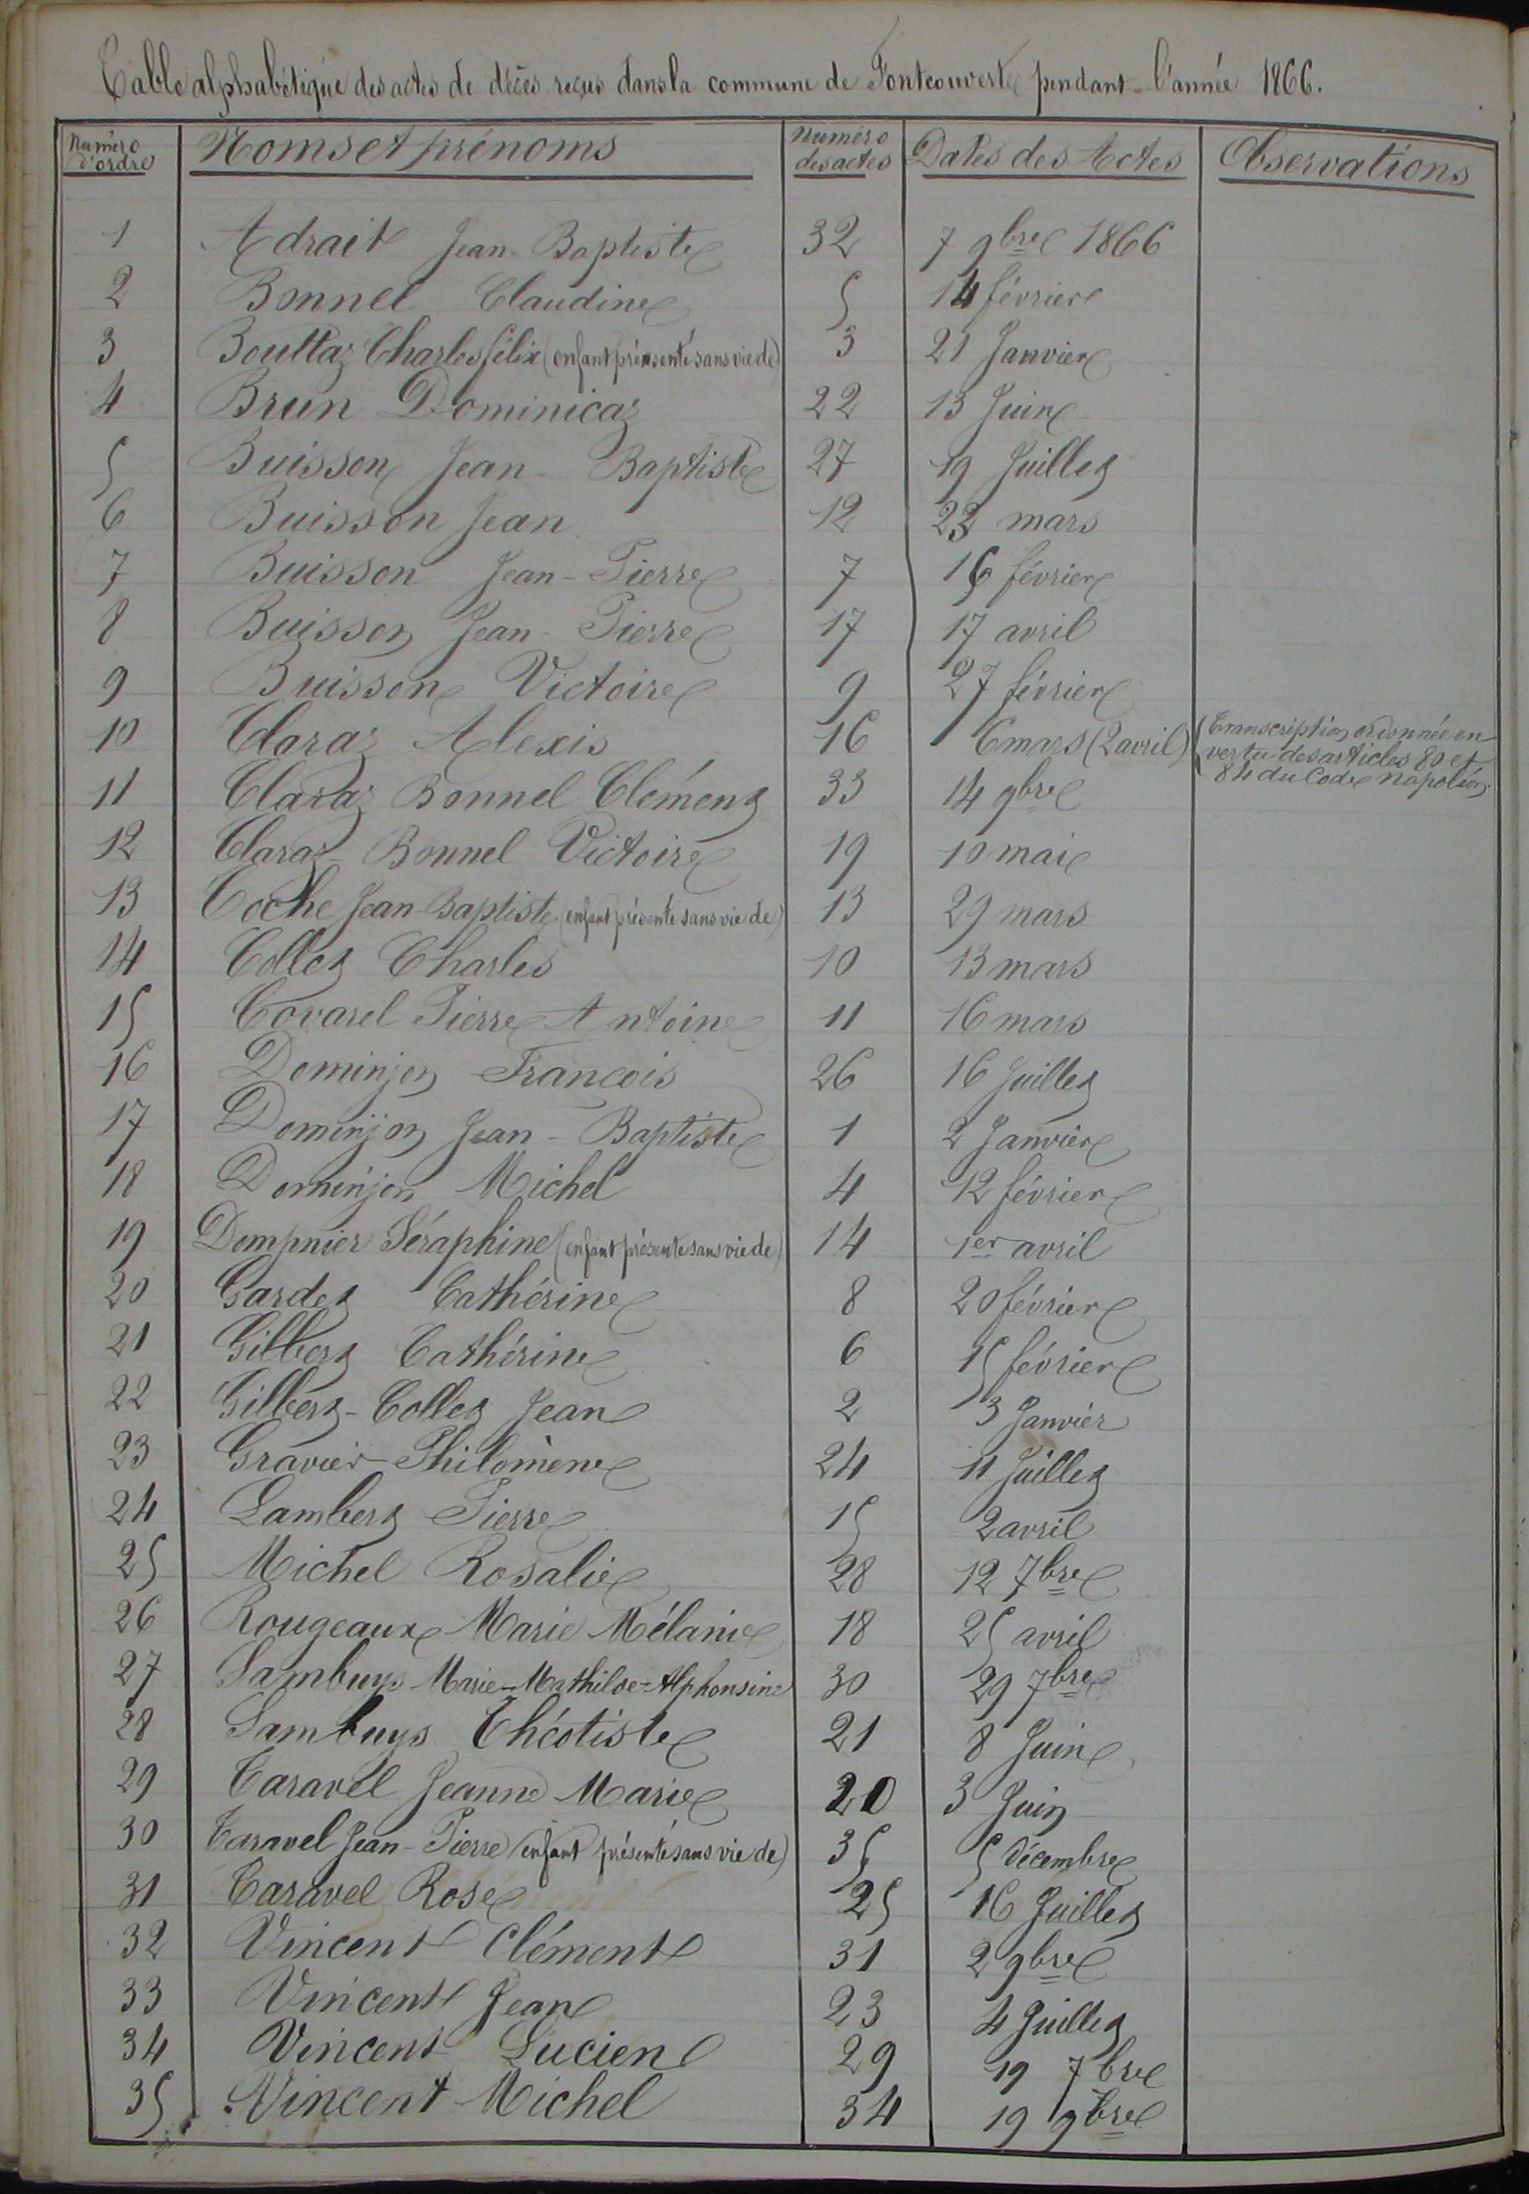 Table alphabétique des actes de décès reçus dans la commune de Fontcouverte pendant l'année 1866.
Numéro d'ordre Noms et prénoms Numéro des actes Dates des Actes Observations
1 Adrait Jean-Baptiste 32 7 9bre 1866
2 Bonnel Claudine 5 14 février
3 Bouttaz Charles félix (enfant présenté sans vie de) 3 21 Janvier
4 Brun Dominica 22 13 Juin
5 Buisson Jean-Baptiste 27 19 Juillet
6 Buisson Jean 12 23 mars
7 Buisson Jean-Pierre 7 16 février
8 Buisson Jean-Pierre 17 17 avril
9 Buisson Victoire 9 27 février
10 Claraz Alexis 16 6 mars (2 avril) (Transcription ordonnée en
vertu des articles 80 et
84 du Code Napoléon
11 Claraz Bonnel Clément 33 14 9bre
12 Claraz Bonnel Victoire 19 10 mai
13 Coche Jean-Baptiste (enfant présenté sans vie de) 13 29 mars
14 Collet Charles 10 13 mars
15 Covarel Pierre Antoine 11 16 mars
16 Dominjon Francois 26 16 Juillet
17 Dominjon Jean-Baptiste 1 2 Janvier
18 Dominjon Michel 4 12 février
19 Dompnier Séraphine (enfant présenté sans vie de) 14 1er avril
20 Gardet Cathérine 8 20 février
21 Gilbert Cathérine 6 15 février
22 Gilbert-Collet Jean 2 3 Janvier
23 Gravier Philomène 24 11 Juillet
24 Lambert Pierre 15 2 avril
25 Michel Rosalie 28 12 7bre
26 Rougeaux Marie Mélanie 18 25 avril
27 Sambuys Marie-Mathilde-Alphonsine 30 29 7bre
28 Sambuys Théotiste 21 8 Juin
29 Taravel Jeanne Marie 20 3 Juin
30 Taravel Jean-Pierre (enfant présenté sans vie de) 35 5 décembre
31 Taravel Rose 25 16 Juillet
32 Vincent Clément 31 2 9bre
33 Vincent Jean 23 4 Juillet
34 Vincent Lucien 29 19 7bre
35 Vincent Michel 34 19 9bre